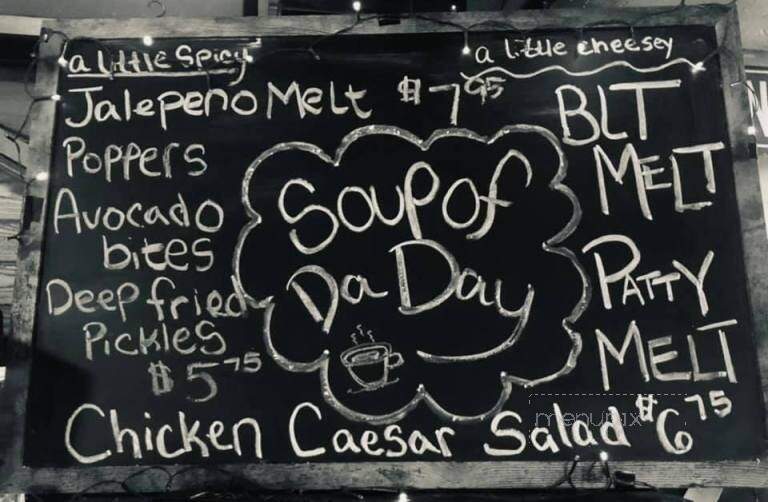 a little Spicy
a little cheesey
Jalepeno Melt $7.95
Poppers
Avocado
bites
Deep fried
Pickles
$5.75
Soup of
Da Day
BLT
MELT
PATTY
MELT
Chicken Caesar Salad $6.75
menupix